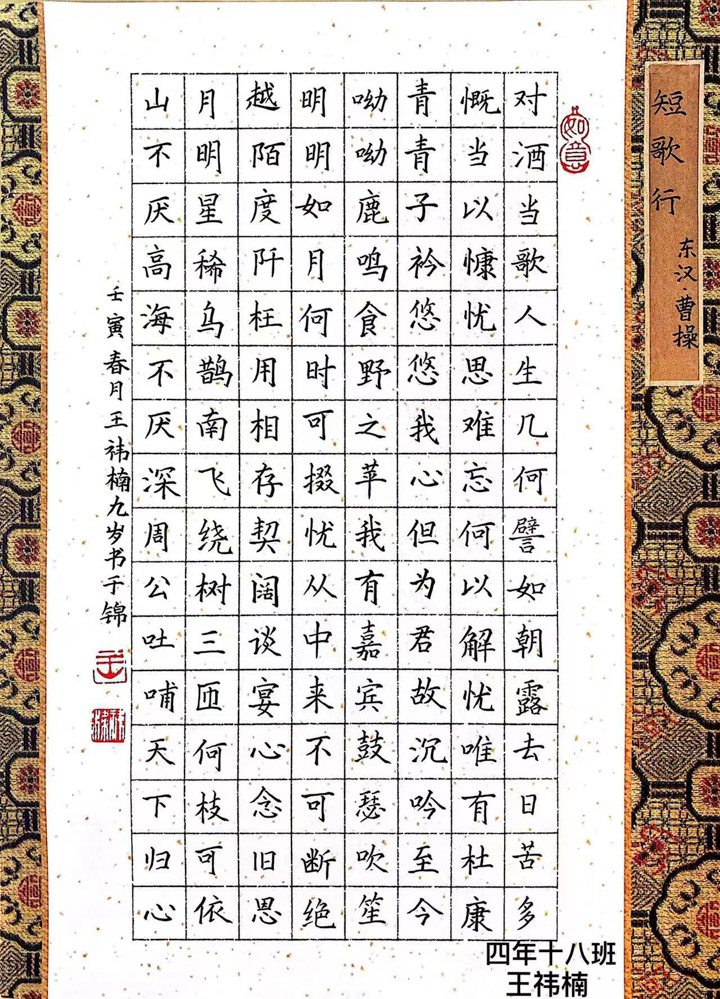 短歌行
东汉·曹操
如意
对酒当歌人生几何譬如朝露去日苦多
慨当以慷忧思难忘何以解忧唯有杜康
青青子衿悠悠我心但为君故沉吟至今
呦呦鹿鸣食野之苹我有嘉宾鼓瑟吹笙
明明如月何时可掇忧从中来不可断绝
越陌度阡枉用相存契阔谈宴心念旧恩
月明星稀乌鹊南飞绕树三匝何枝可依
山不厌高海不厌深周公吐哺天下归心
壬寅春月王祎楠九岁书于锦
王
四年十八班
王祎楠